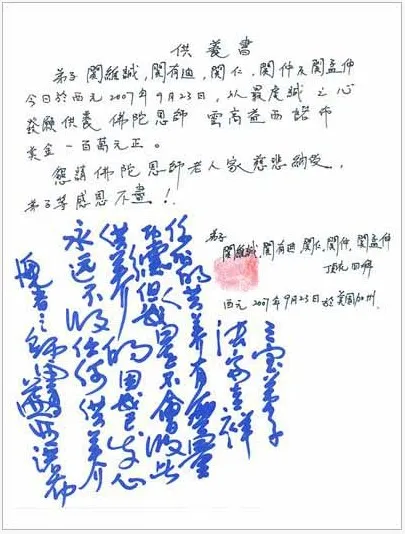 供養書
弟子 関維誠，関有迪，関仁，関仲及関孟仲
今日於西元2007年9月23日，以最虔誠之心
發願供養佛陀恩師 雲高益西諾布
美金一百萬元正。
懇請佛陀恩師老人家慈悲納受，
弟子等感恩不盡！
弟子
関維誠，関有迪，関仁，関仲，関孟仲
頂礼
西元2007年9月23日於美國加州
三宝弟子
法音吉祥
你的供养有無量
功德但我是不會收此
供养的因我已发心
永远不收任何供养
慚者之師